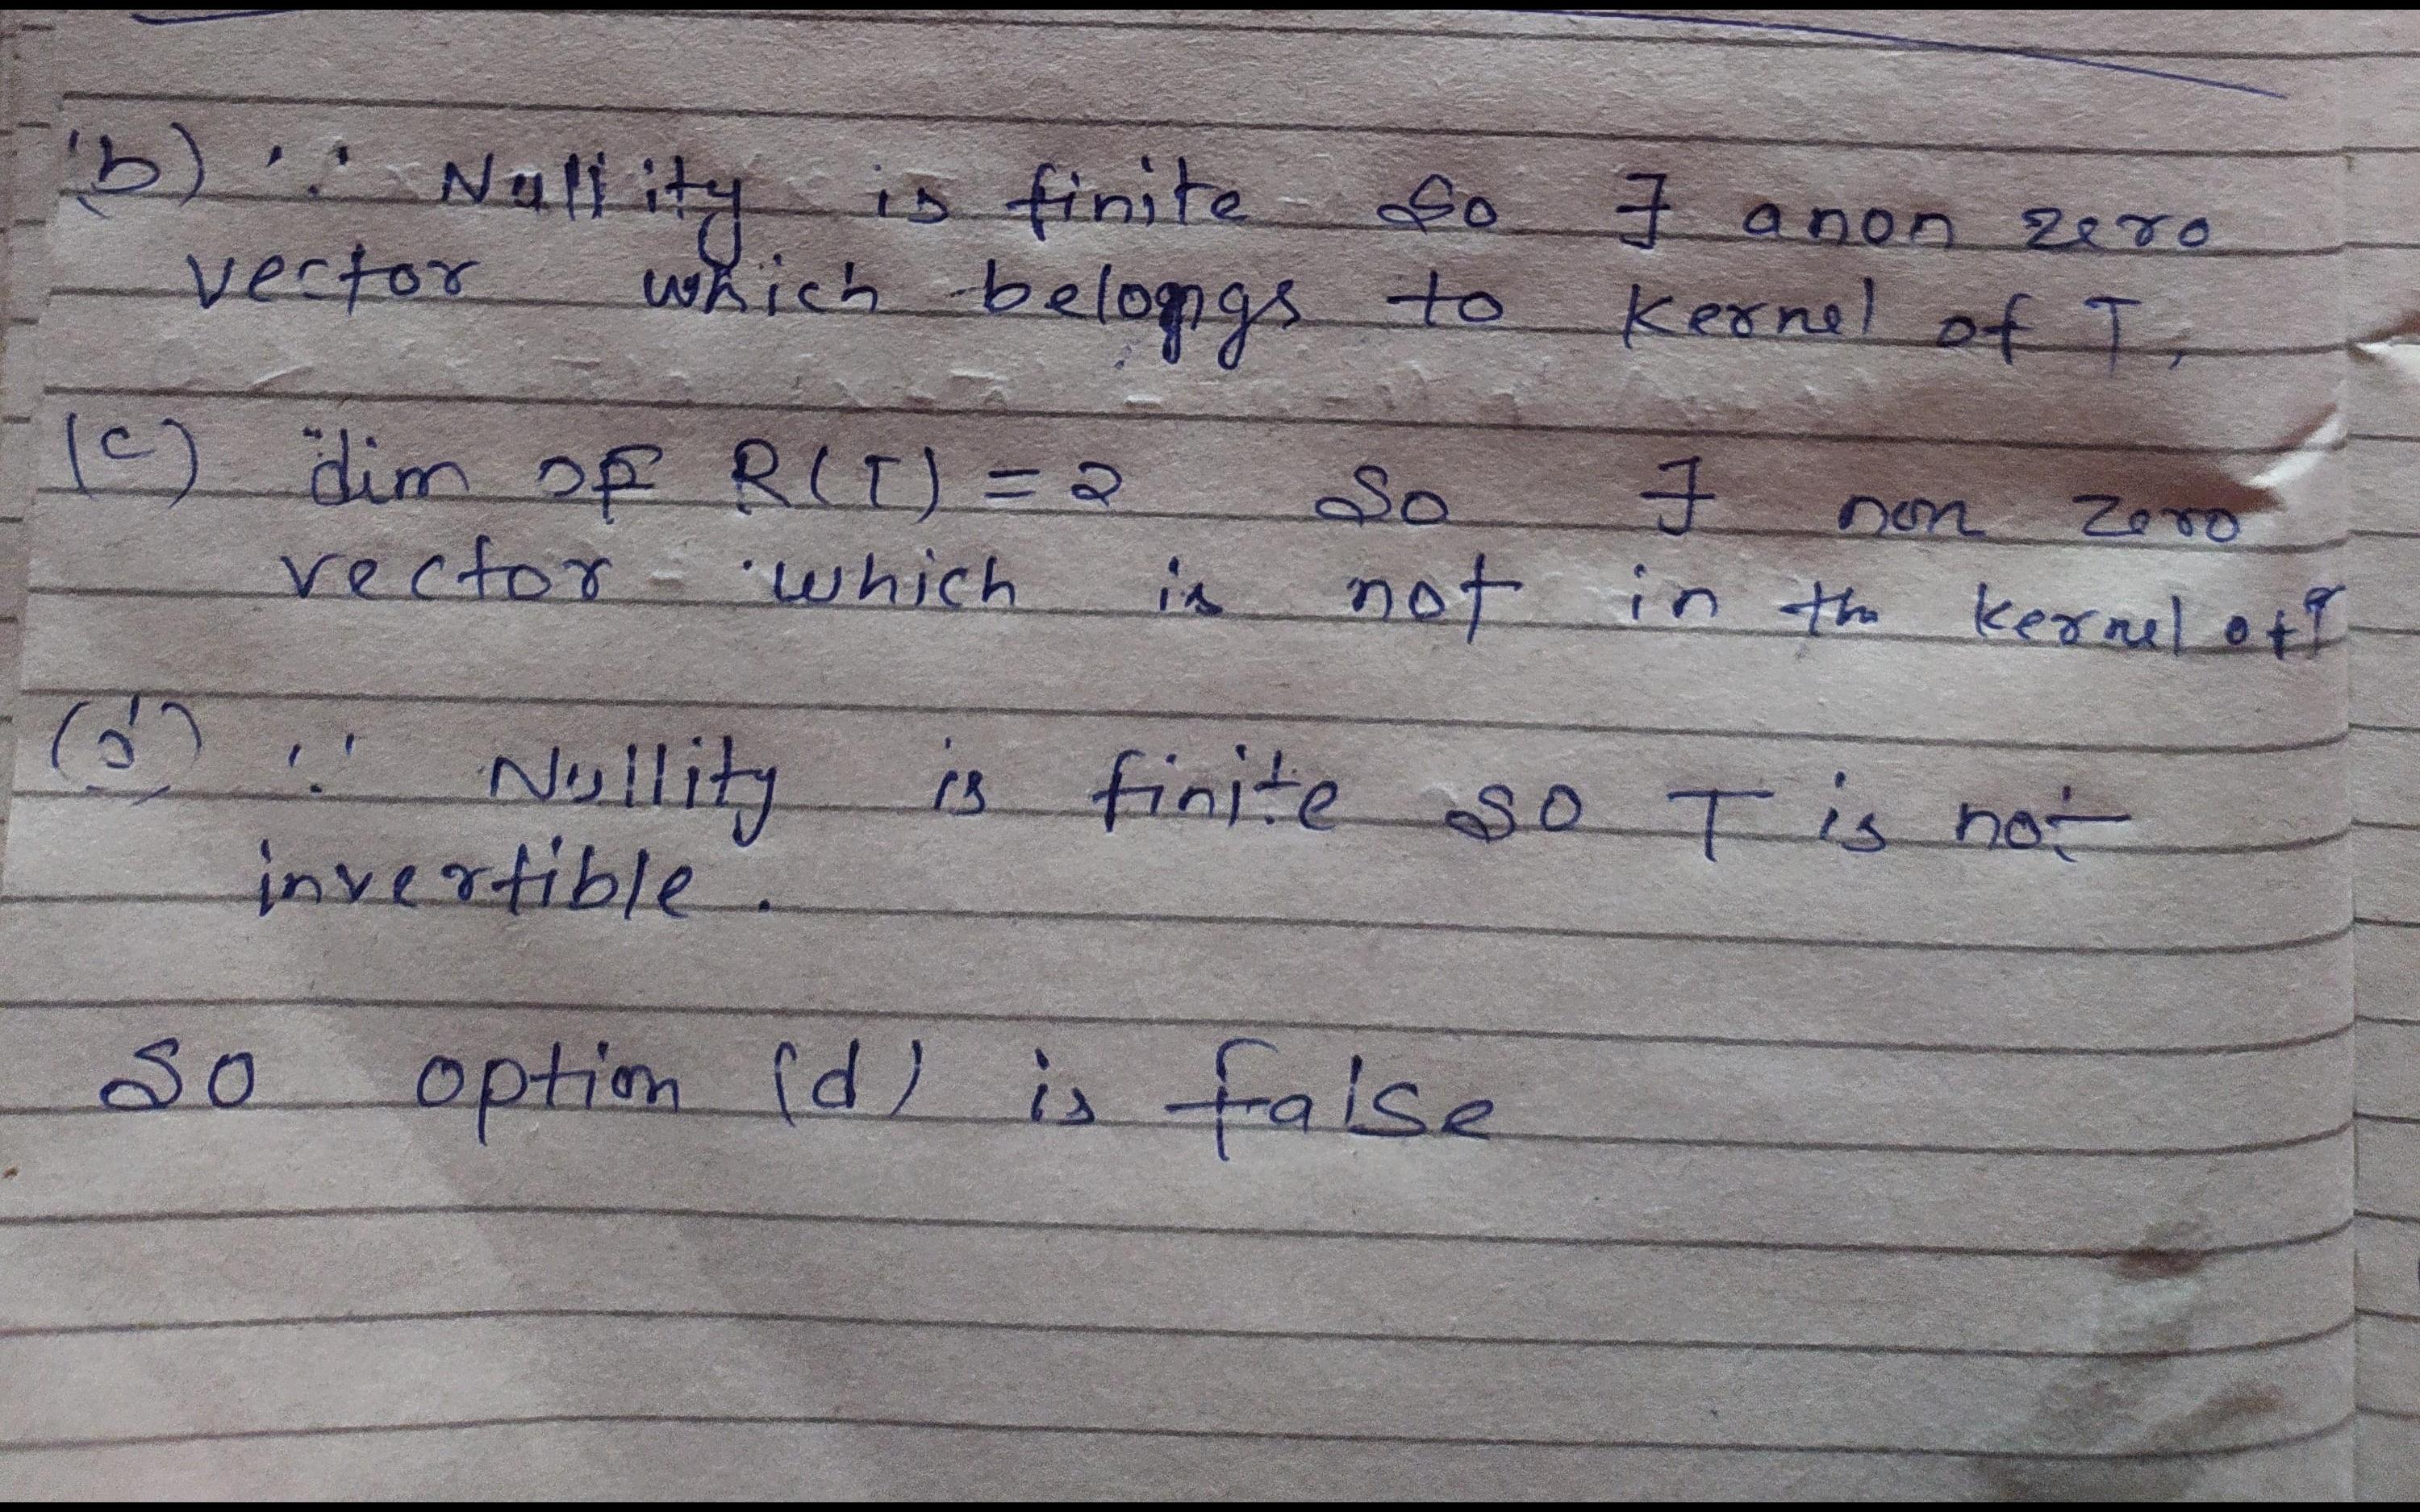 (b) ∵ Nullity is finite So ∃ a non zero
vector which belongs to Kernel of T,
(c) dim of R(T) = 2 So ∃ non zero
vector which is not in the Kernel of T
(d) ∵ Nullity is finite so T is not
invertible.
So option (d) is false